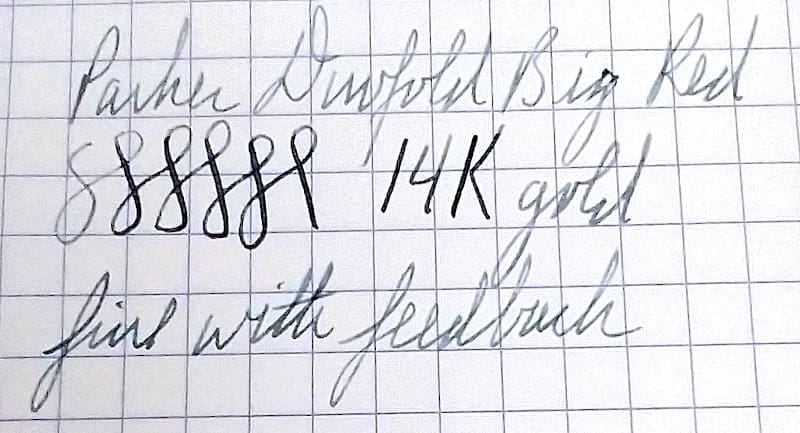 Parker Duofold Big Red
14K gold
fine with feedback